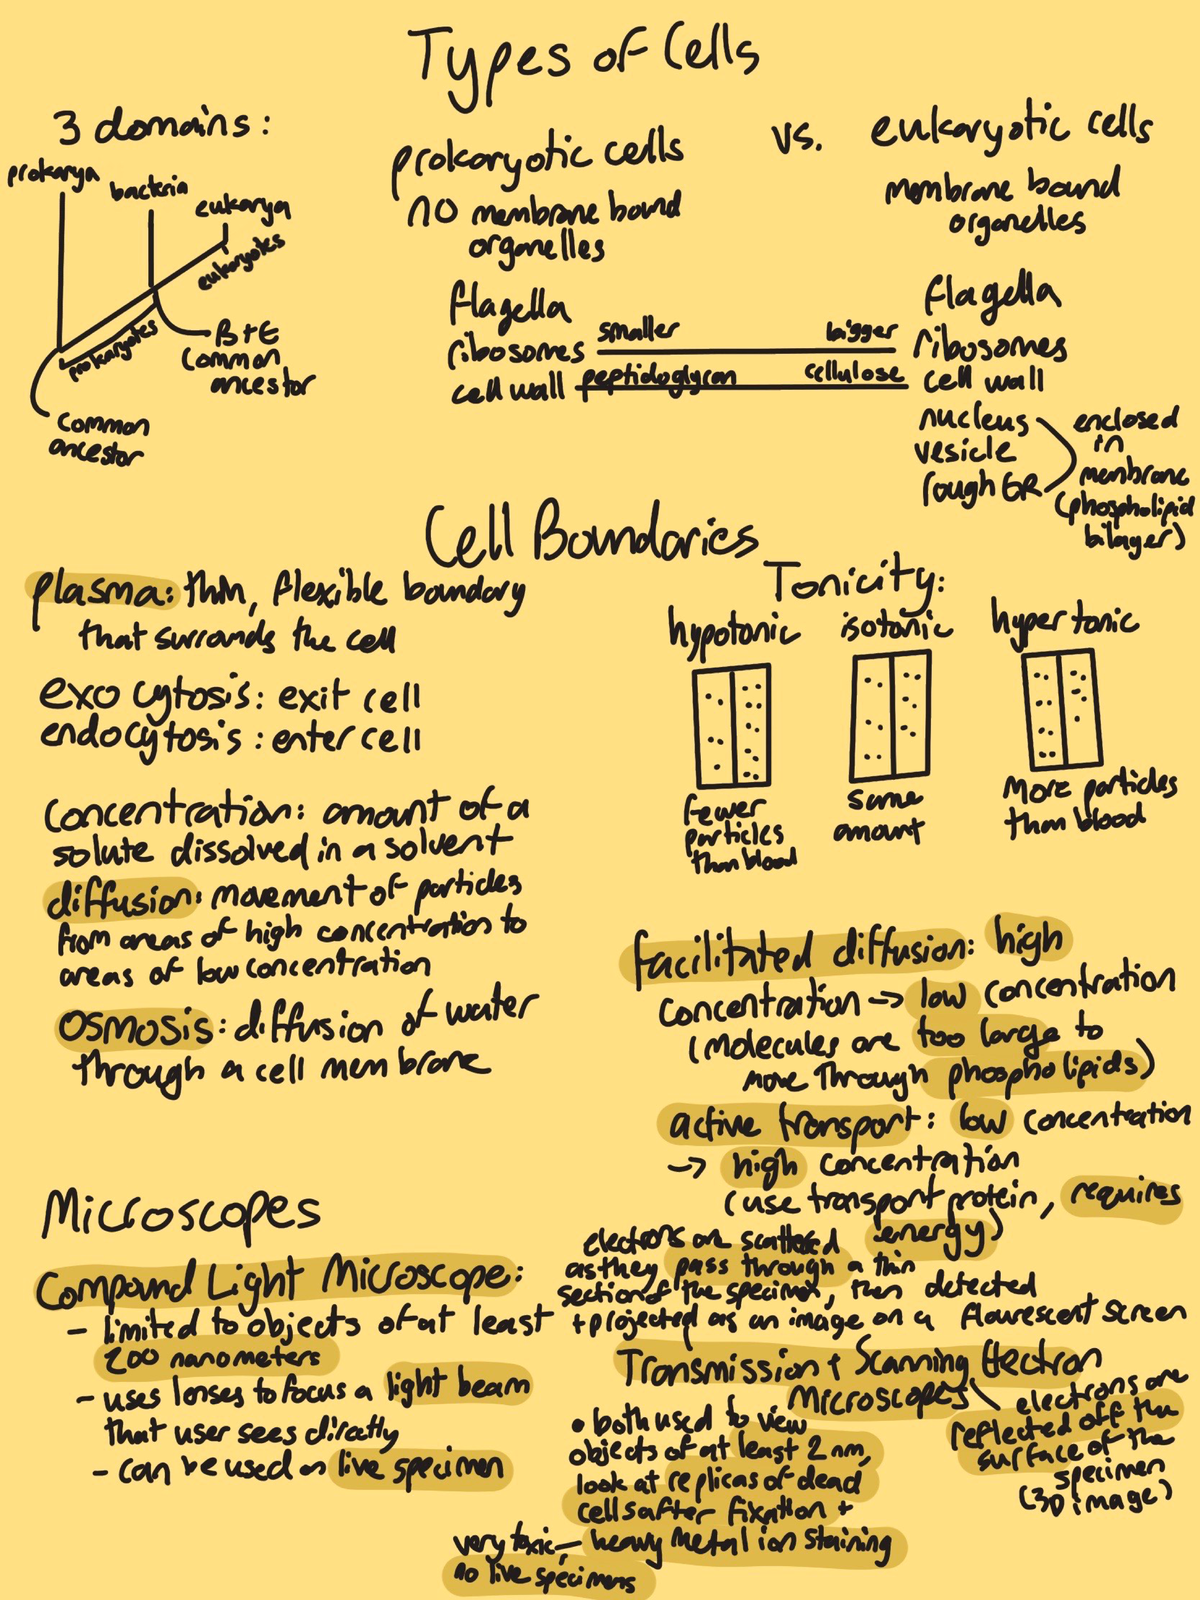 Types of Cells
3 domains:
prokarya
bacteria
eukarya
eukaryotes
prokaryotes
B+E
common
ancestor
common
ancestor
prokaryotic cells
no membrane bound
organelles
flagella
ribosomes
cell wall
smaller
bigger
peptidoglycan
cellulose
vs.
eukaryotic cells
membrane bound
organelles
flagella
ribosomes
cell wall
nucleus
vesicle
rough ER
enclosed
in
membrane
(phospholipid
bilayer)
Cell Boundaries
plasma: thin, flexible boundary
that surrounds the cell
exocytosis: exit cell
endocytosis: enter cell
concentration: amount of a
solute dissolved in a solvent
diffusion: movement of particles
from areas of high concentration to
areas of low concentration
osmosis: diffusion of water
through a cell membrane
Tonicity:
hypotonic
isotonic
hypertonic
fewer
particles
than blood
same
amount
more particles
than blood
facilitated diffusion: high
concentration → low concentration
(molecules are too large to
move through phospholipids)
active transport: low concentration
→ high concentration
(use transport protein, requires
energy)
Microscopes
Compound Light Microscope:
- limited to objects of at least
200 nanometers
- uses lenses to focus a light beam
that user sees directly
- can be used on live specimen
electrons are scattered
as they pass through a thin
section of the specimen, then detected
+ projected as an image on a flourescent screen
Transmission + Scanning Electron
Microscopes
• both used to view
objects of at least 2 nm,
look at replicas of dead
cells after fixation +
heavy metal ion staining
very toxic,
no live specimens
electrons are
reflected off the
surface of the
specimen
(3D image)